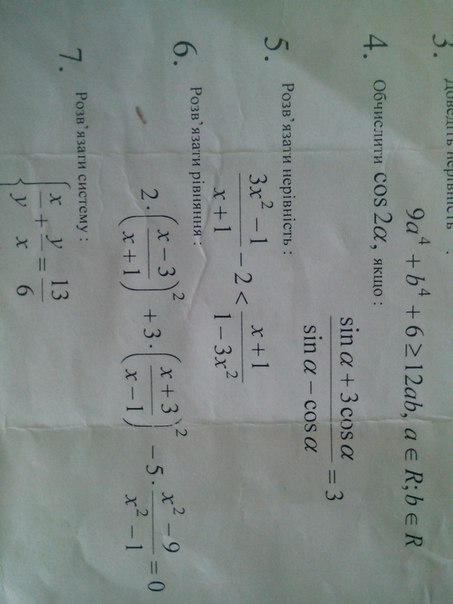 3. Доведіть нерівність :
9a⁴ + b⁴ + 6 ≥ 12ab, a ∈ R; b ∈ R
4. Обчислити cos 2α, якщо :
(sin α + 3cos α)/(sin α − cos α) = 3
5. Розв'язати нерівність :
(3x² − 1)/(x + 1) − 2 < (x + 1)/(1 − 3x²)
6. Розв'язати рівняння :
2·((x − 3)/(x + 1))² + 3·((x + 3)/(x − 1))² − 5·(x² − 9)/(x² − 1) = 0
7. Розв'язати систему :
{ x/y + y/x = 13/6